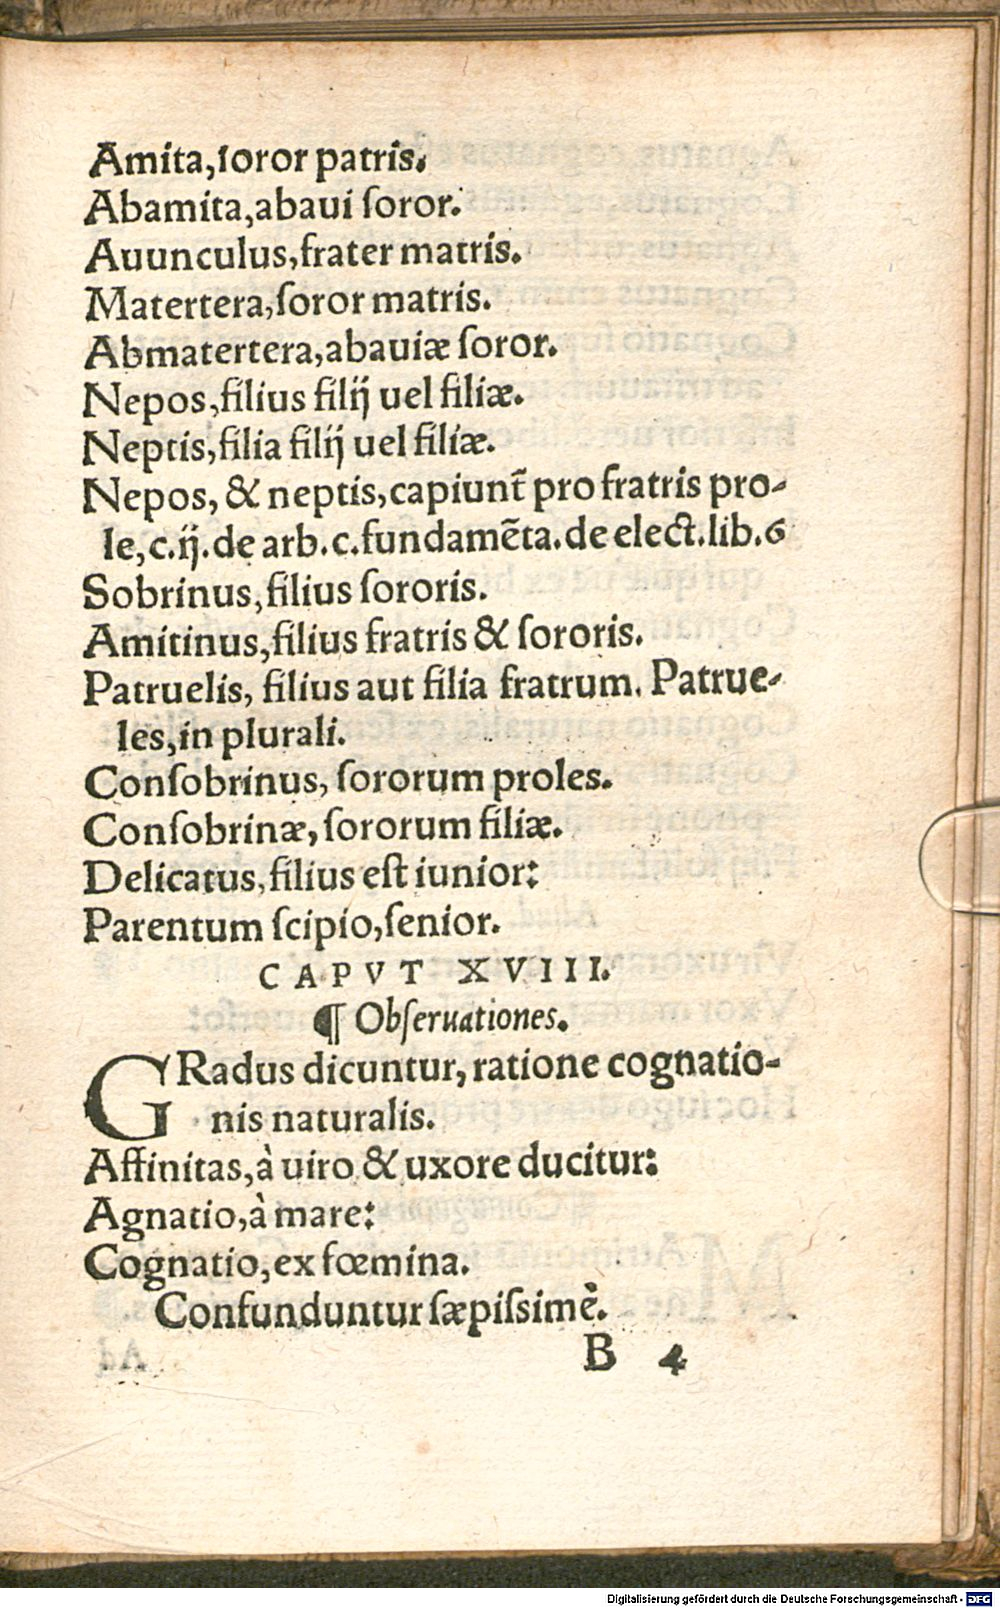 Amita,ſoror patris.
Abamita,abaui ſoror.
Auunculus,frater matris.
Matertera,ſoror matris.
Abmatertera,abauiæ ſoror.
Nepos,filius filij uel filiæ.
Neptis,filia filij uel filiæ.
Nepos, & neptis,capiunt̃ pro fratris pro-
le,c.ij.de arb.c.fundamẽta.de elect.lib.6
Sobrinus,filius ſororis.
Amitinus,filius fratris & ſororis.
Patruelis, filius aut filia fratrum. Patrue-
les,in plurali.
Conſobrinus, ſororum proles.
Conſobrinæ, ſororum filiæ.
Delicatus,filius eſt iunior:
Parentum ſcipio,ſenior.
CAPVT XVIII.
¶ Obſeruationes.
GRadus dicuntur, ratione cognatio-
nis naturalis.
Affinitas,à uiro & uxore ducitur:
Agnatio,à mare:
Cognatio,ex fœmina.
Confunduntur ſæpiſsimè.
B 4
Digitalisierung gefördert durch die Deutsche Forschungsgemeinschaft - DFG